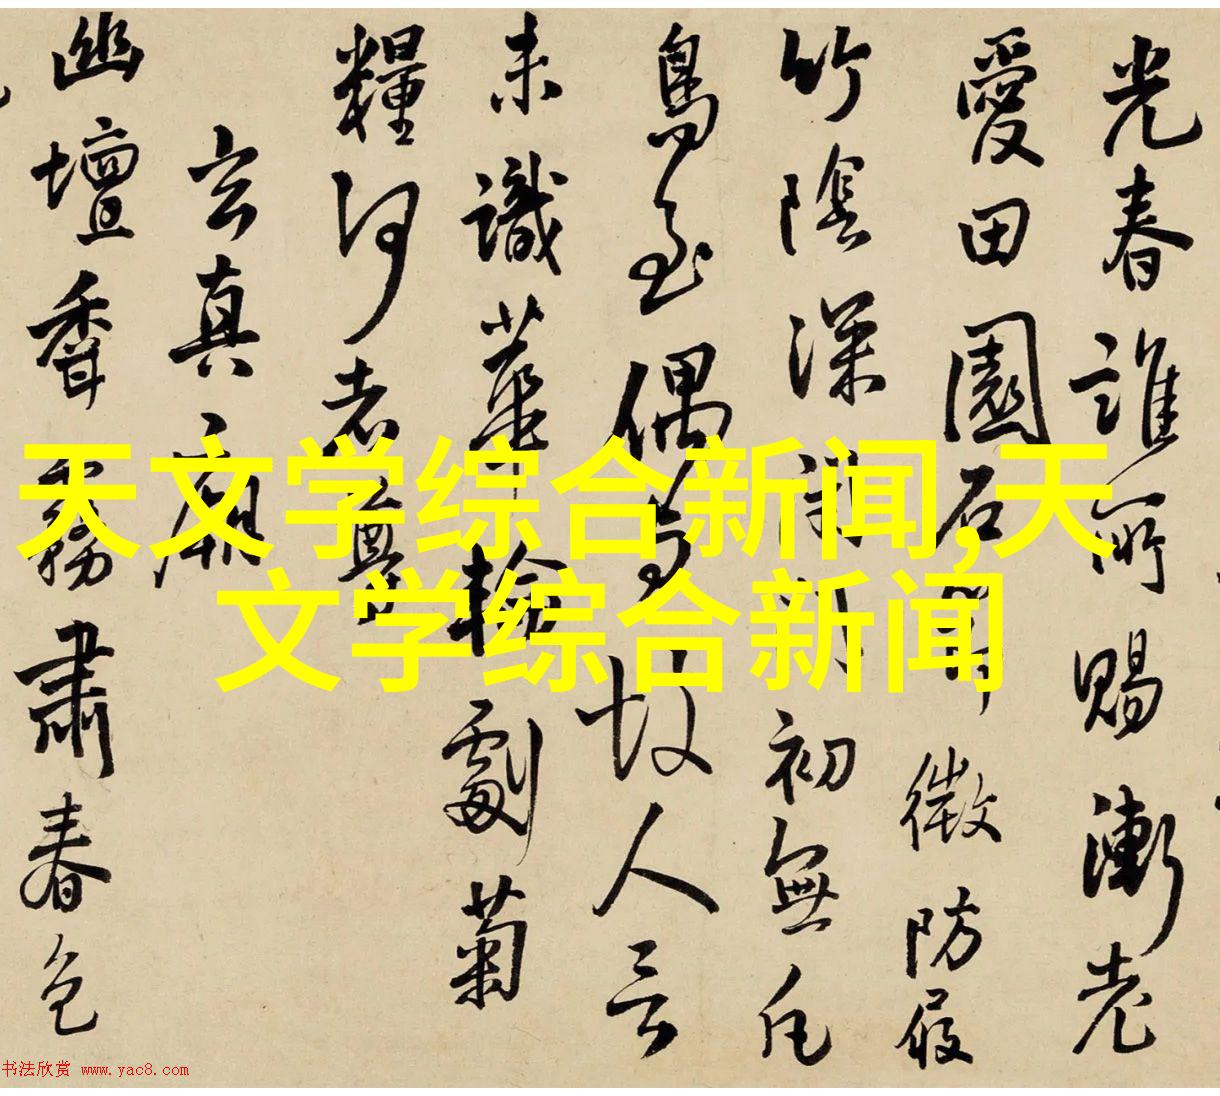 光春誰所賜漸老
愛田園石微防屐
竹陰深初無凡
鳥至偶与故人言
未識華輪劇菊
糧何老
玄真廟
幽壇香霧肅春色
天文学综合新闻,天
文学综合新闻
书法欣赏 www.yac8.com